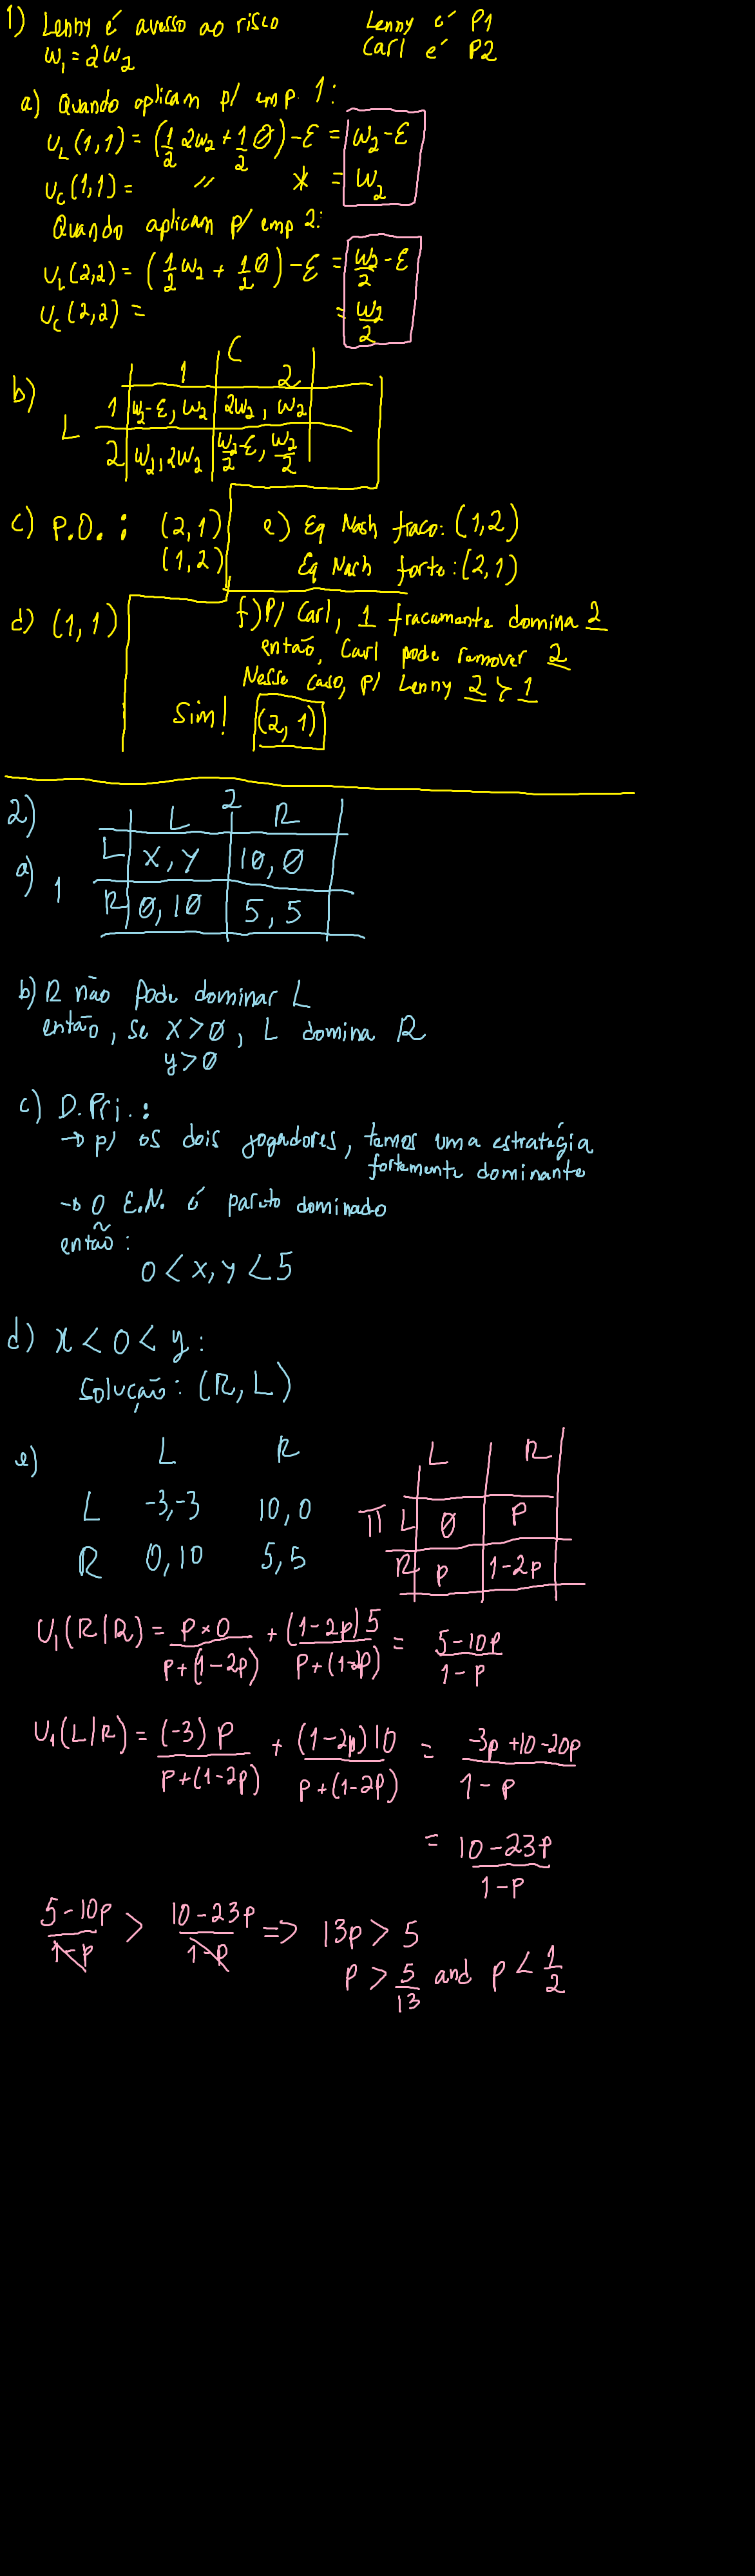 1) Lenny é avesso ao risco
Lenny é P1
w₁ = 2w₂
Carl é P2
a) Quando aplicam p/ emp. 1:
U_L(1,1) = (1/2 2w₂ + 1/2 0) - ε = w₂ - ε
U_C(1,1) = " * = w₂
Quando aplicam p/ emp 2:
U_L(2,2) = (1/2 w₂ + 1/2 0) - ε = w₂/2 - ε
U_C(2,2) = = w₂/2
b)
C
1 2
L 1 w₂-ε, w₂ 2w₂, w₂
2 w₂, 2w₂ w₂/2-ε, w₂/2
c) P.O. : (2,1)
(1,2)
d) (1,1)
e) Eq Nash fraco: (1,2)
Eq Nash forte: (2,1)
f) P/ Carl, 1 fracamente domina 2
então, Carl pode remover 2
Nesse caso, p/ Lenny 2 ≻ 1
Sim! (2,1)
2)
a)
2
L R
1 L x, y 10, 0
R 0, 10 5, 5
b) R não pode dominar L
então, se x > 0, L domina R
y > 0
c) D. Pri. :
→ p/ os dois jogadores, temos uma estratégia
fortemente dominante
→ O E.N. é pareto dominado
então :
0 < x, y < 5
d) x < 0 < y :
Solução : (R, L)
e)
L R
L -3,-3 10, 0
R 0, 10 5, 5
L R
π L 0 p
R p 1-2p
U₁(R|R) = p×0/p+(1-2p) + (1-2p)5/p+(1-2p) = 5-10p/1-p
U₁(L|R) = (-3)p/p+(1-2p) + (1-2p)10/p+(1-2p) = -3p+10-20p/1-p
= 10-23p/1-p
5-10p/1-p > 10-23p/1-p => 13p > 5
p > 5/13 and p < 1/2